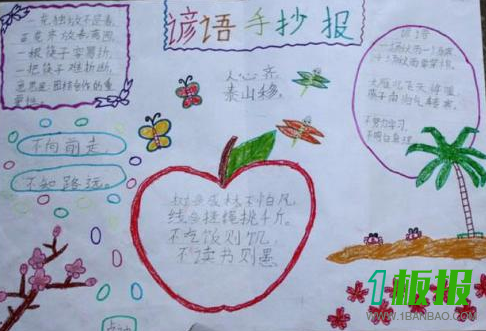 谚语手抄报
一花独放不是春,
百花来放春满园。
一根筷子容易折,
一把筷子难折断。
意思是:团结合作的重
要性。
人心齐,
泰山移。
不向前走,
不知路远。
树多成林不怕风,
线多搓绳挑千斤。
不吃饭则饥,
不读书则愚
谚语
一场秋雨一场寒
十场秋雨
大雁北飞天将暖,
燕子南归气转寒。
不努力学习,
1板报
WWW.1BANBAO.COM